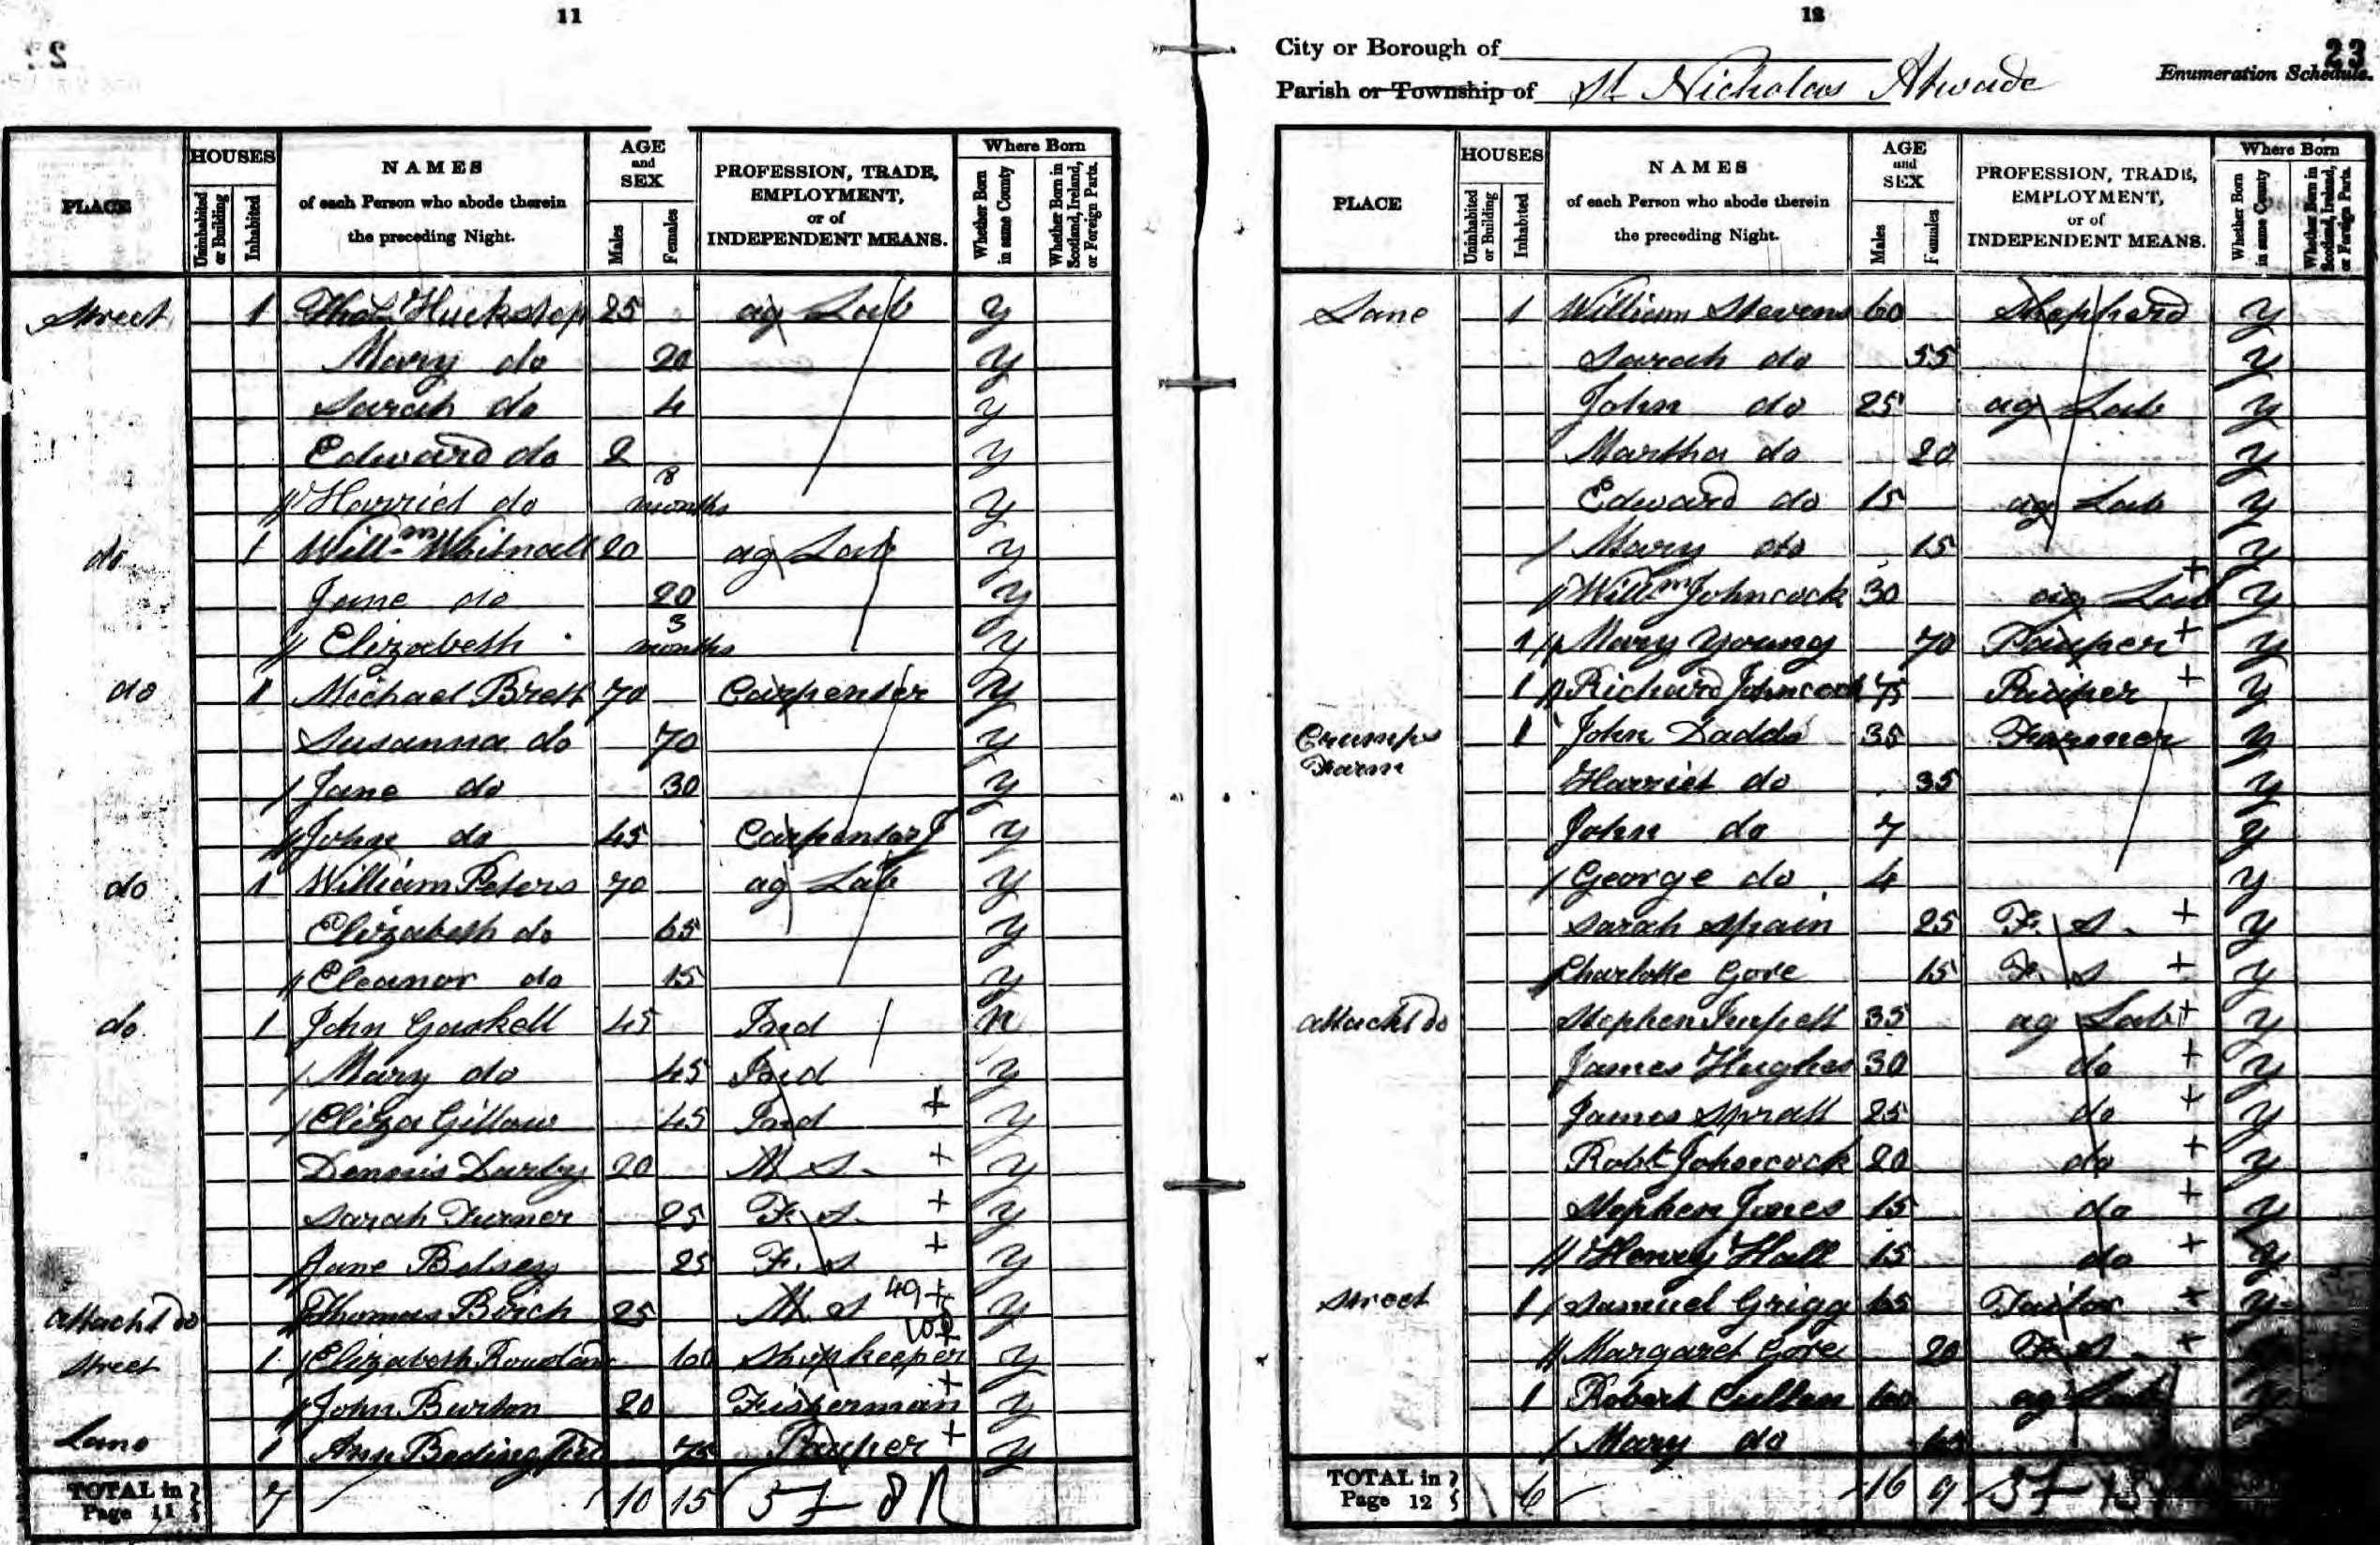 11
PLACE HOUSES NAMES of each Person who abode therein the preceding Night. AGE and SEX PROFESSION, TRADE, EMPLOYMENT, or of INDEPENDENT MEANS. Where Born
Uninhabited or Building Inhabited Males Females Whether Born in same County Whether Born in Scotland, Ireland, or Foreign Parts.
Street 1 Thos Huckstep 25 ag Lab y
Mary do 20 y
Sarah do 4 y
Edward do 2 y
Harriet do 8 months y
do 1 Willm Whitnall 20 ag Lab y
Jane do 20 y
Elizabeth 3 months y
do 1 Michael Brett 70 Carpenter y
Susanna do 70 y
Jane do 30 y
John do 45 Carpenter J y
do 1 William Peters 70 ag Lab y
Elizabeth do 65 y
Eleanor do 15 y
do 1 John Gaskell 45 Ind n
Mary do 45 Ind y
Eliza Gillow 45 Ind + y
Dennis Darby 20 M S + y
Sarah Turner 25 F. S. + y
Jane Belsey 25 F. S + y
attachd do Thomas Birch 25 M S 49 + y
Street 1 Elizabeth 60 Shopkeeper y
John Burton 20 Fisherman + y
Lane 1 Ann 75 Pauper + y
TOTAL in Page 11 7 10 15
12
23
City or Borough of
Enumeration Schedule.
Parish or Township of St Nicholas Atwade
PLACE HOUSES NAMES of each Person who abode therein the preceding Night. AGE and SEX PROFESSION, TRADE, EMPLOYMENT, or of INDEPENDENT MEANS. Where Born
Uninhabited or Building Inhabited Males Females Whether Born in same County Whether Born in Scotland, Ireland, or Foreign Parts.
Lane 1 William Stevens 60 Shepherd y
Sarah do 55 y
John do 25 ag Lab y
Martha do 20 y
Edward do 15 ag Lab y
Mary do 15 y
Willm Johncock 30 ag Lab + y
1 Mary Young 70 Pauper + y
1 Richard Johncock 75 Pauper + y
Crumps Farm 1 John Dadds 35 Farmer y
Harriet do 35 y
John do 7 y
George do 4 y
Sarah Spain 25 F. S. + y
Charlotte Gore 15 F. S + y
attachd do Stephen 35 ag Lab + y
James Hughes 30 do + y
James Spratt 25 do + y
Robt Johncock 20 do + y
Stephen Jones 15 do + y
Henry Hall 15 do + y
Street 1 Samuel Grigg 65 Tailor + y
Margaret Gore 20 F. S. +
1 Robert Cullen 60 ag Lab
Mary do
TOTAL in Page 12 6 16 9